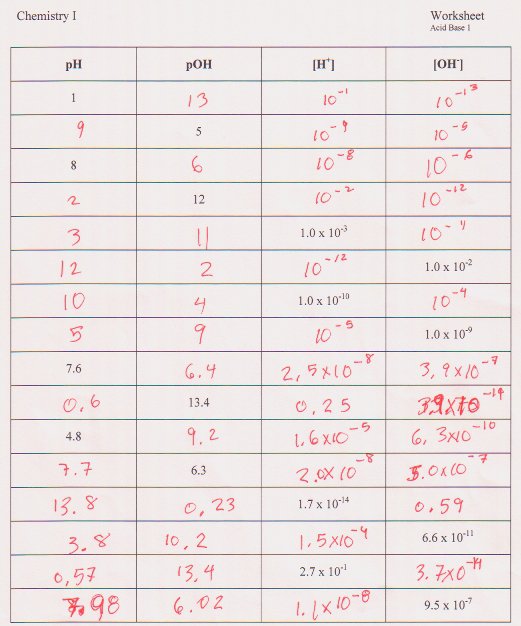 Chemistry I Worksheet
Acid Base 1
pH pOH [H⁺] [OH⁻]
1 13 10⁻¹ 10⁻¹³
9 5 10⁻⁹ 10⁻⁵
8 6 10⁻⁸ 10⁻⁶
2 12 10⁻² 10⁻¹²
3 11 1.0 x 10⁻³ 10⁻¹¹
12 2 10⁻¹² 1.0 x 10⁻²
10 4 1.0 x 10⁻¹⁰ 10⁻⁴
5 9 10⁻⁵ 1.0 x 10⁻⁹
7.6 6.4 2,5x10⁻⁸ 3,9x10⁻⁷
0,6 13.4 0,25 10⁻¹⁴
4.8 9.2 1,6x10⁻⁵ 6,3x10⁻¹⁰
7.7 6.3 2.0x10⁻⁸ 5.0x10⁻⁷
13.8 0,23 1.7 x 10⁻¹⁴ 0,59
3.8 10.2 1.5x10⁻⁴ 6.6 x 10⁻¹¹
0,57 13,4 2.7 x 10⁻¹ 3.7x10⁻¹⁴
7.98 6.02 1.1x10⁻⁸ 9.5 x 10⁻⁷